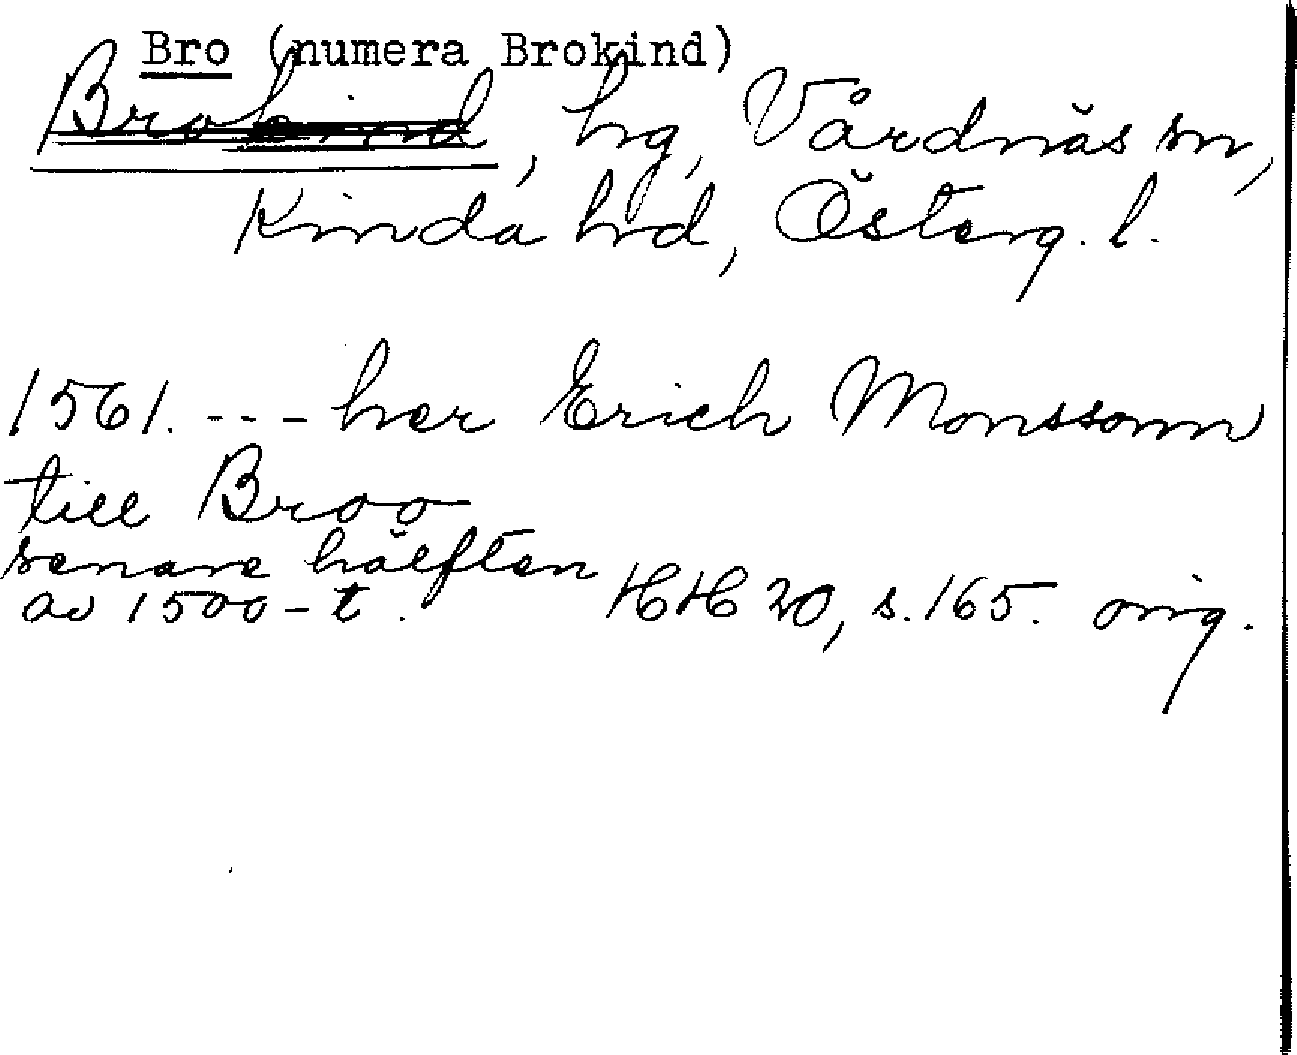 Bro (numera Brokind)
Brokind, hg, Vårdnäs sn,
Kinda hd, Österg. l.
1561. --- her Erich Monssonn
till Broo
senare hälften
av 1500-t. HH 20, s. 165. orig.